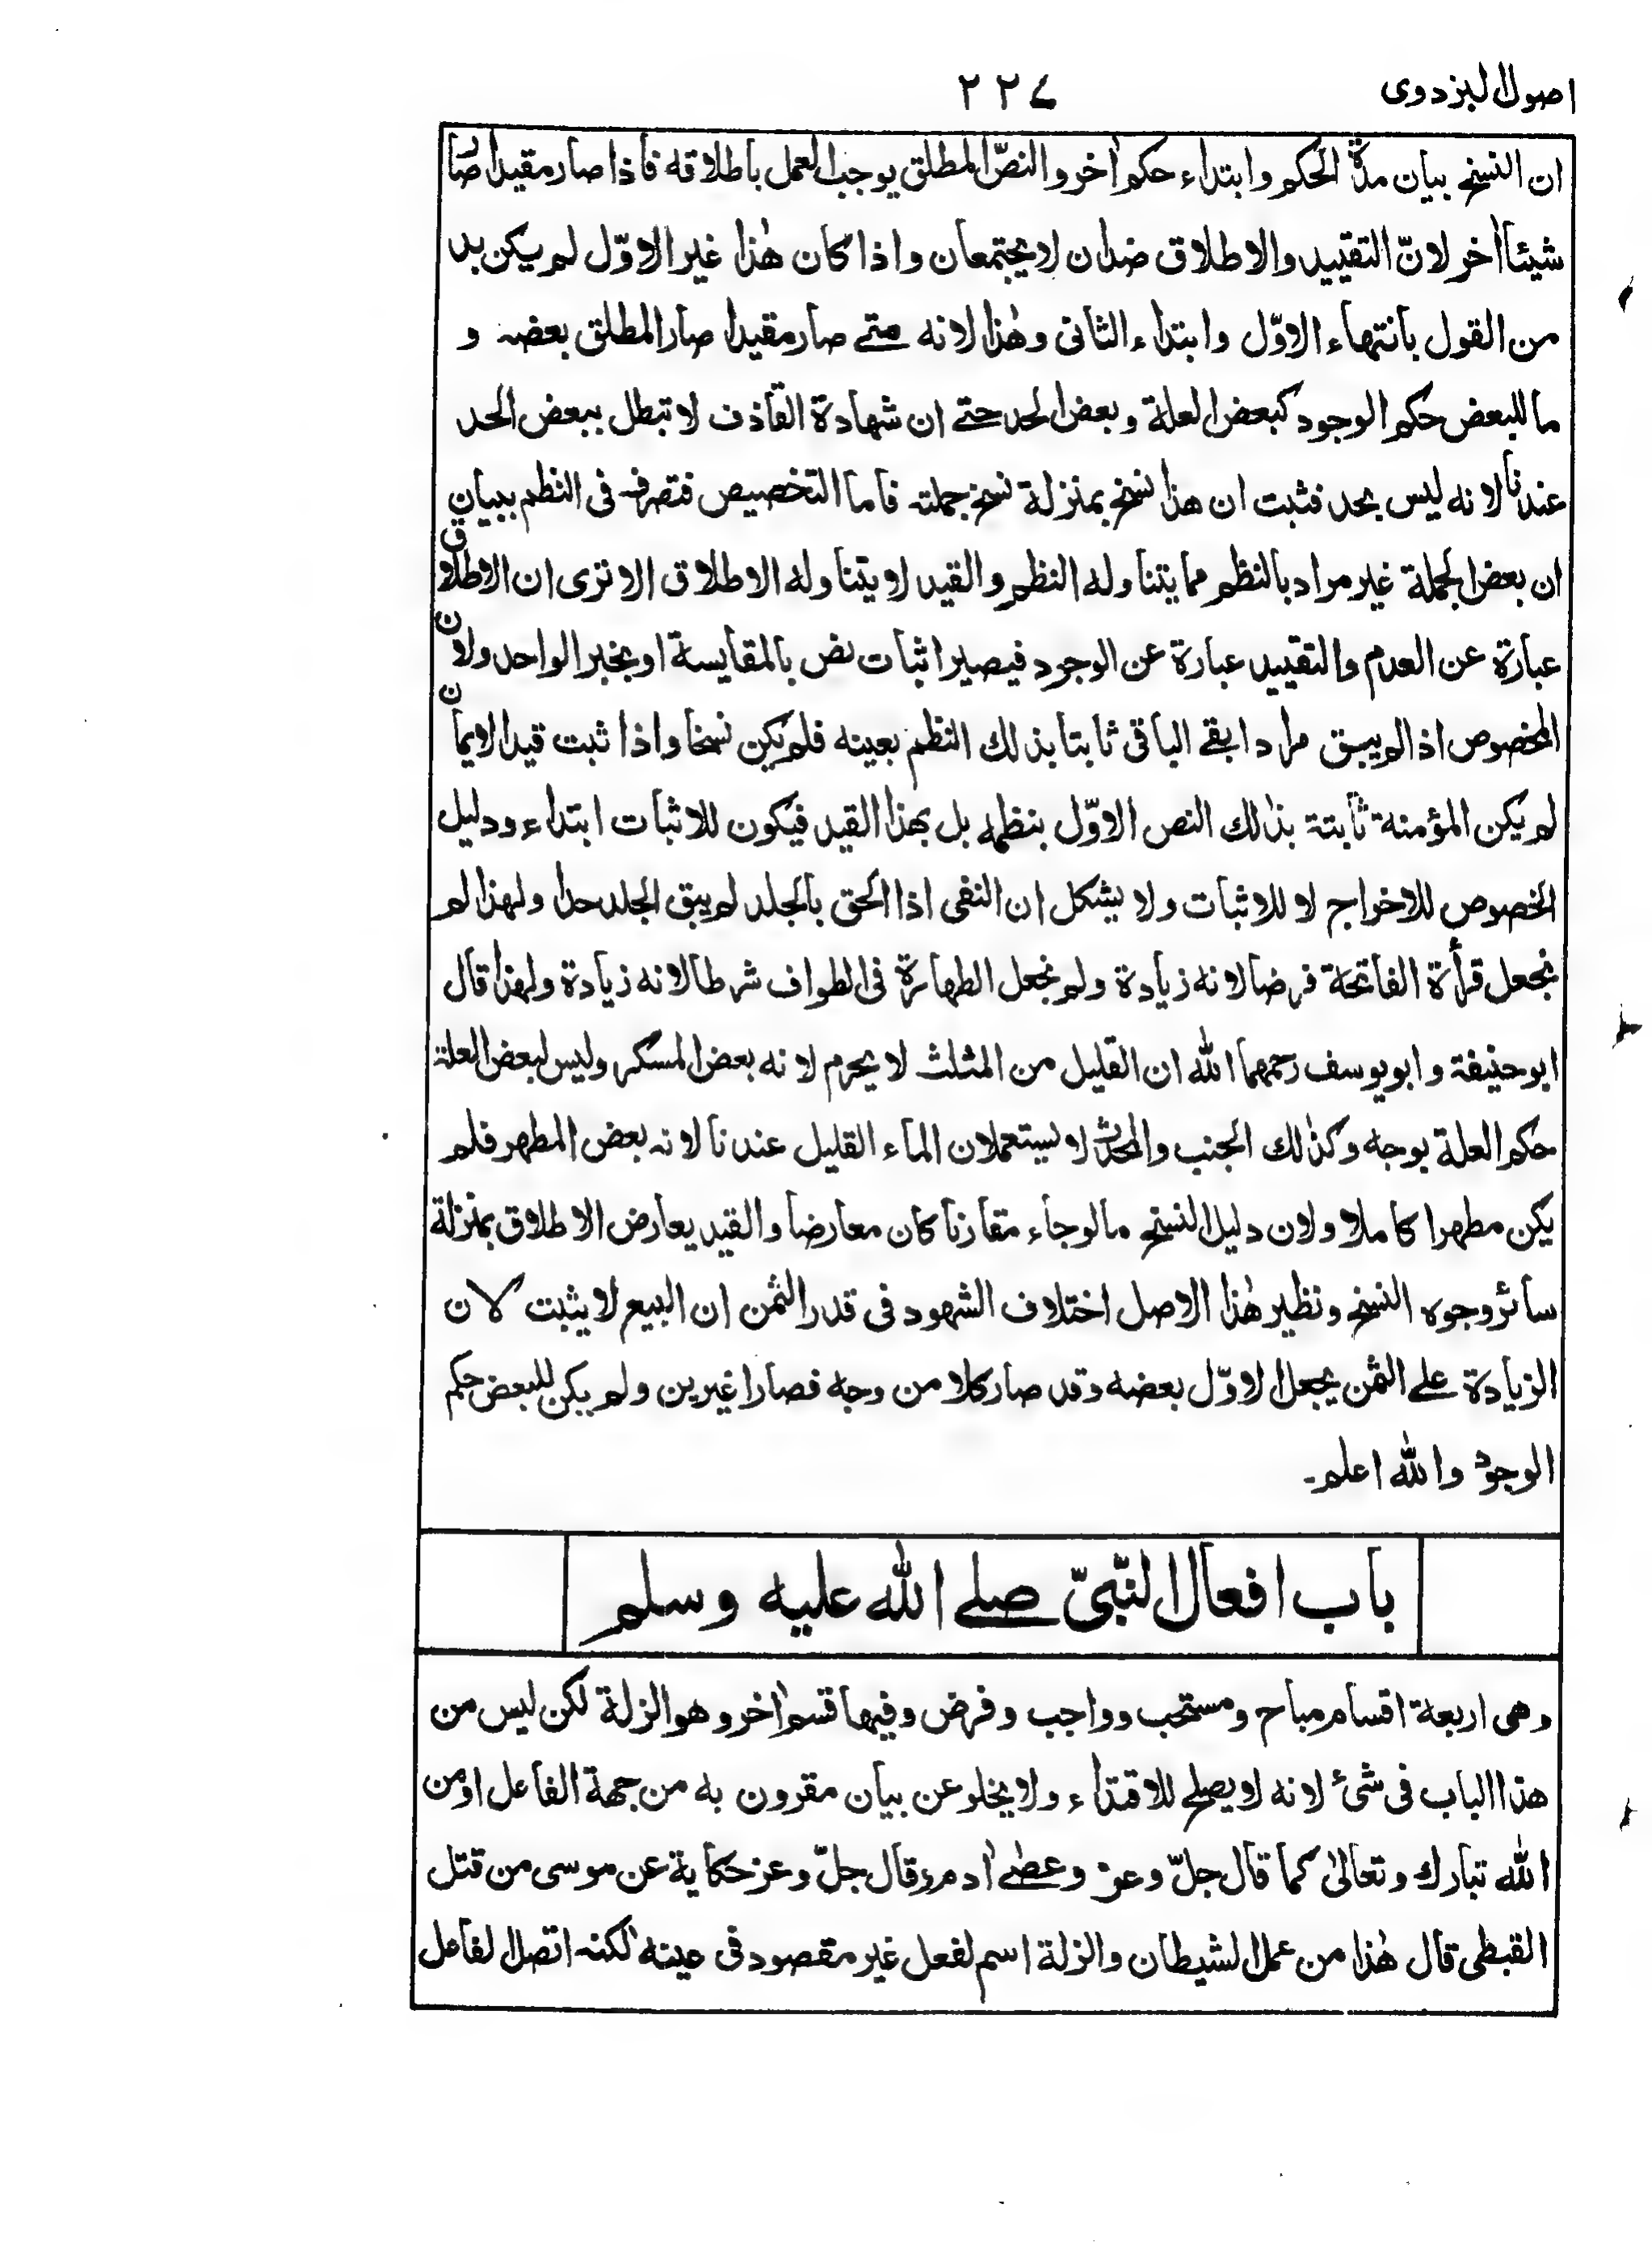 اصول البزدوی ۲۲۷
ان النسخ بيان مدة الحكم وابتداء حكم اٰخر والنصّ المطلق يوجب العمل باطلاقه فاذا صار مقيدا صار
شيئا اٰخر لانّ التقييد والاطلاق ضدان لا يجتمعان واذا كان هٰذا غير الاوّل لم يكن بد
من القول بانتهاء الاوّل وابتداء الثانى وهٰذا لانه متے صار مقيدا صار المطلق بعضه و
ما للبعض حكم الوجود كبعض العلة وبعض الحد حتے ان شهادة القاذف لا تبطل ببعض الحد
عندنا لانه ليس بحد فثبت ان هذا نسخ بمنزلة نسخ جملته فاما التخصيص فتصرف فى النظم ببيان
ان بعض الجملة غير مراد بالنظم مما يتناوله النظم والقيد لا يتناوله الاطلاق الا ترى ان الاطلاق
عبارة عن العدم والتقييد عبارة عن الوجود فيصير اثبات نص بالمقايسة او بخبر الواحد ولان
المخصوص اذا لم يبق مرادا بقے الباقى ثابتا بذلك النظم بعينه فلم يكن نسخا واذا ثبت قيد الايمان
لم يكن المؤمنة ثابتة بذٰلك النص الاوّل بنظمه بل بهذا القيد فيكون للاثبات ابتداء ودليل
الخصوص للاخراج لا للاثبات ولا يشكل ان النفى اذا الحق بالجلد لم يبق الجلد حدا ولهذا لم
نجعل قرأة الفاتحة فرضا لانه زيادة ولم نجعل الطهارة فى الطواف شرطا لانه زيادة ولهذا قال
ابو حنيفة وابو يوسف رحمهما الله ان القليل من المثلث لا يحرم لانه بعض المسكر وليس لبعض العلة
حكم العلة بوجه وكذٰلك الجنب والمحدث لا يستعملان الماء القليل عندنا لانه بعض المطهر فلم
يكن مطهرا كاملا ولان دليل النسخ ما لو جاء مقارنا كان معارضا والقيد يعارض الاطلاق بمنزلة
سائر وجوه النسخ ونظير هٰذا الاصل اختلاف الشهود فى قدر الثمن ان البيع لا يثبت لان
الزيادة علے الثمن يجعل الاوّل بعضه وقد صار كلا من وجه فصارا غيرين ولم يكن للبعض حكم
الوجود والله اعلم۔
باب افعال النّبىّ صلے الله عليه وسلم
وهى اربعة اقسام مباح ومستحب وواجب وفرض وفيها قسم اٰخر وهو الزلة لكن ليس من
هذا الباب فى شئ لانه لا يصلح للاقتداء ولا يخلو عن بيان مقرون به من جهة الفاعل او من
الله تبارك وتعالىٰ كما قال جلّ وعز وعصٰے اٰدم وقال جلّ وعز حكاية عن موسى من قتل
القبطى قال هٰذا من عمل الشيطان والزلة اسم لفعل غير مقصود فى عينه لٰكنه اتصل الفاعل